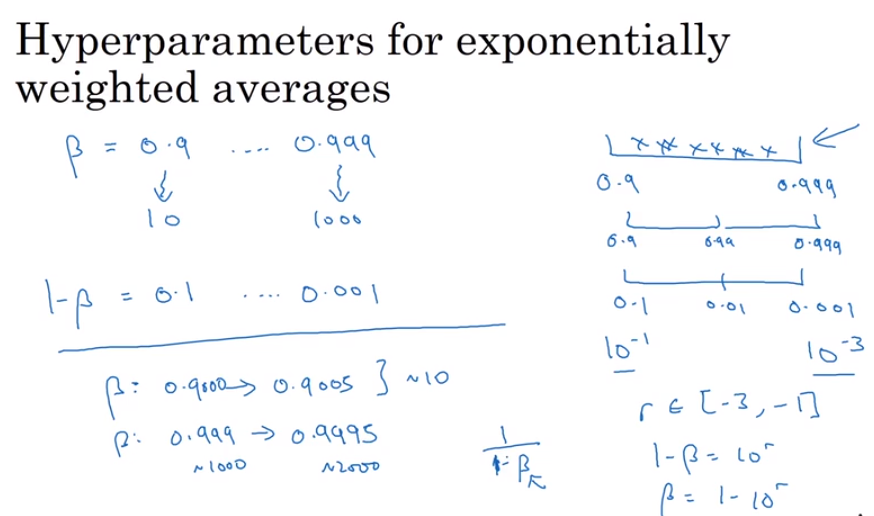 Hyperparameters for exponentially
weighted averages
β = 0.9 .... 0.999
10 1000
1-β = 0.1 .... 0.001
β: 0.9000 → 0.9005 } ~10
β: 0.999 → 0.9995
~1000 ~2000
1
1-β
0.9 0.999
0.9 0.99 0.999
0.1 0.01 0.001
10^-1 10^-3
r ∈ [-3, -1]
1-β = 10^r
β = 1-10^r